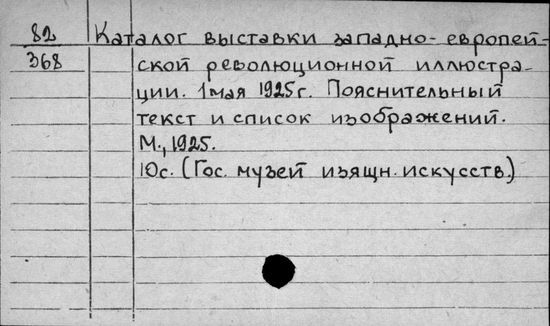 82 Каталог выставки западно-европей-
368 ской революционной иллюстра-
ции. 1 мая 1925 г. Пояснительный
текст и список изображений.
М., 1925.
10 с. (Гос. музей изящн. искусств.)